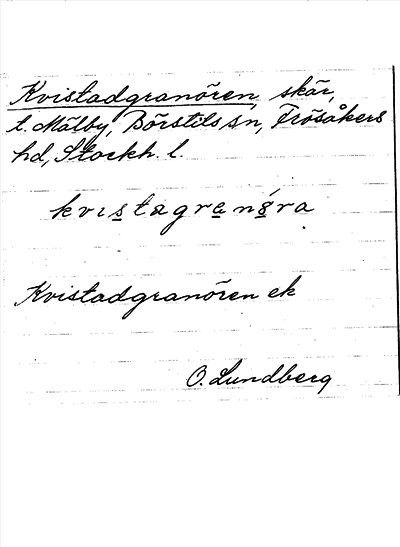 Kvistadgranören, skär,
t. Mälby, Börstils sn, Frösåkers
hd, Stockh. l.
kvistagranöra
Kvistadgranören ek
O. Lundberg